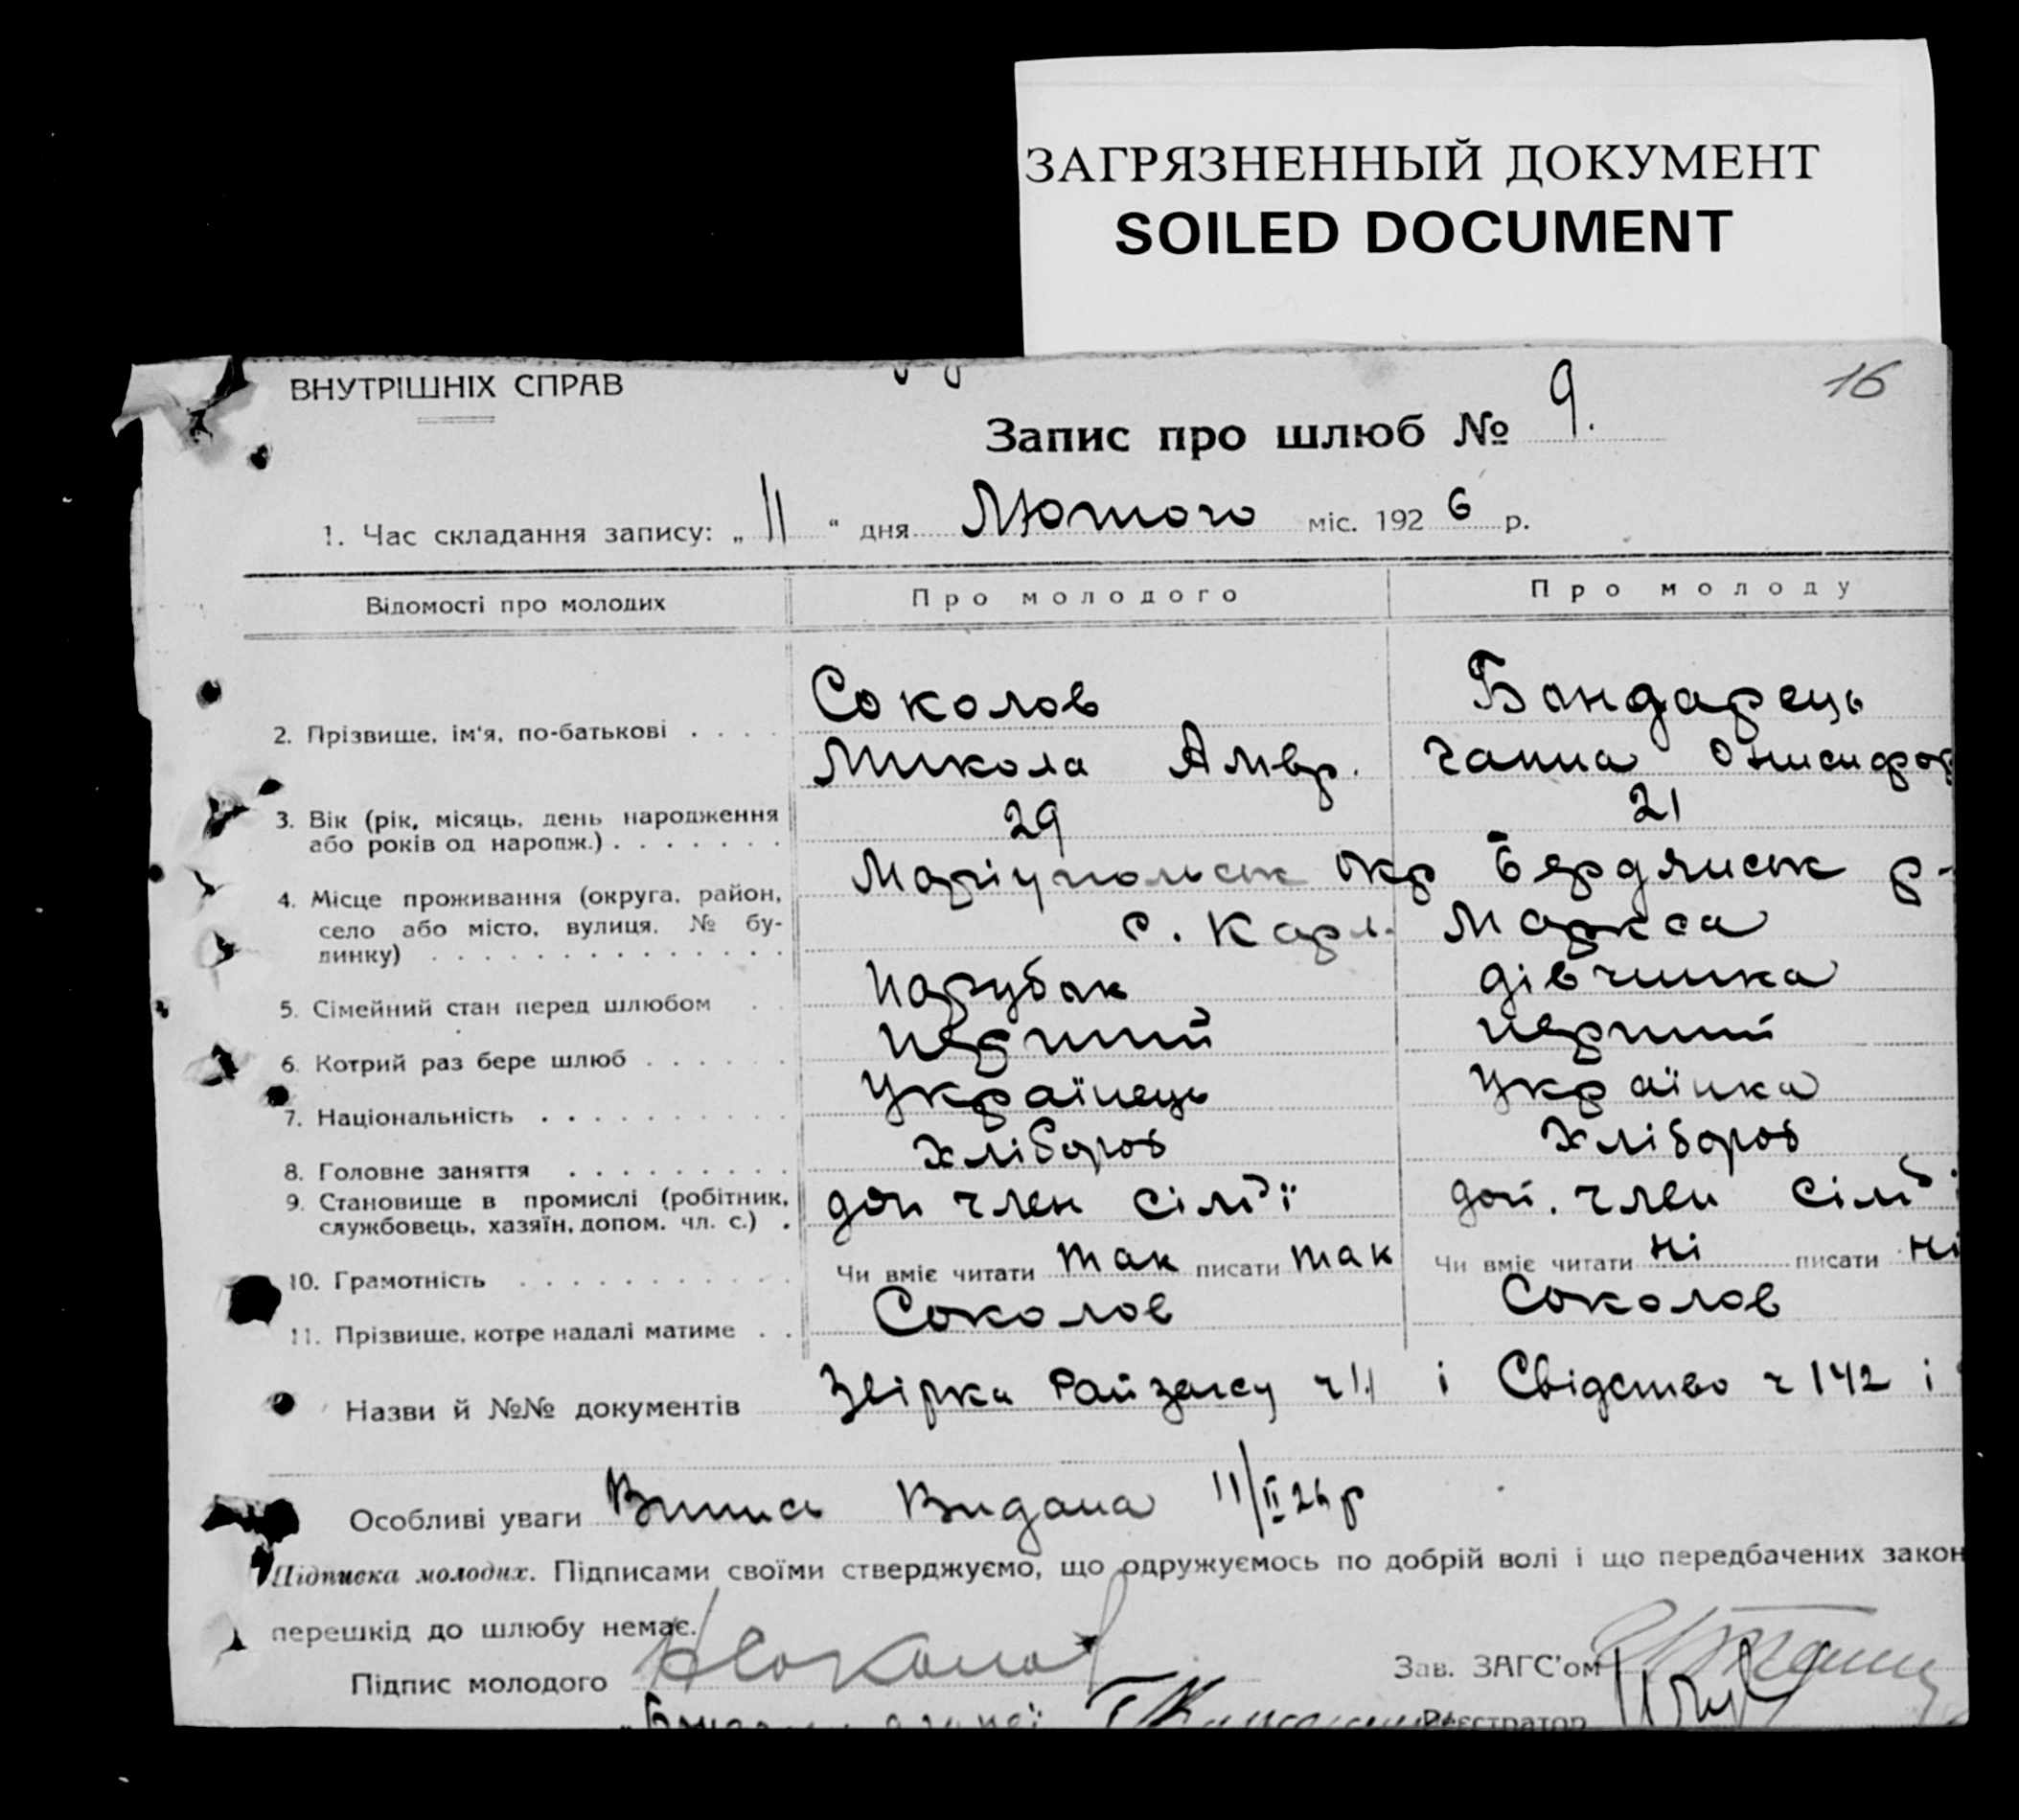 ЗАГРЯЗНЕННЫЙ ДОКУМЕНТ
SOILED DOCUMENT
ВНУТРІШНІХ СПРАВ
16
Запис про шлюб № 9.
1. Час складання запису: „ 11 “ дня Лютого міс. 1926 р.
Відомості про молодих Про молодого Про молоду
Соколов Бондарець
2. Прізвище, ім'я, по-батькові . . . . Микола Амвр. Ганна Онисифор
3. Вік (рік, місяць, день народження 29 21
або років од народж.) . . . . . . .
Маріупольськ окр Бердянськ р-
4. Місце проживання (округа, район,
село або місто, вулиця, № бу- с. Карл Маркса
динку) . . . . . . . . . . . . . .
5. Сімейний стан перед шлюбом . . Парубок дівчинка
6. Котрий раз бере шлюб . . . . . . перший перший
7. Національність . . . . . . . . . . Українець Українка
8. Головне заняття . . . . . . . . . Хлібороб Хлібороб
9. Становище в промислі (робітник, доп член сім'ї доп. член сім'ї
службовець, хазяїн, допом. чл. с.) .
10. Грамотність . . . . . . . . . . . Чи вміє читати так писати так Чи вміє читати ні писати ні
11. Прізвище, котре надалі матиме . . Соколов Соколов
Назви й №№ документів Звірка Райзагсу ч 11 і Свідоство ч 142 і
Особливі уваги Випись Видана 11/II 26 р
Підписка молодих. Підписами своїми стверджуємо, що одружуємось по добрій волі і що передбачених закон
перешкід до шлюбу немає.
Підпис молодого Н Соколов Зав. ЗАГС'ом
Реєстратор